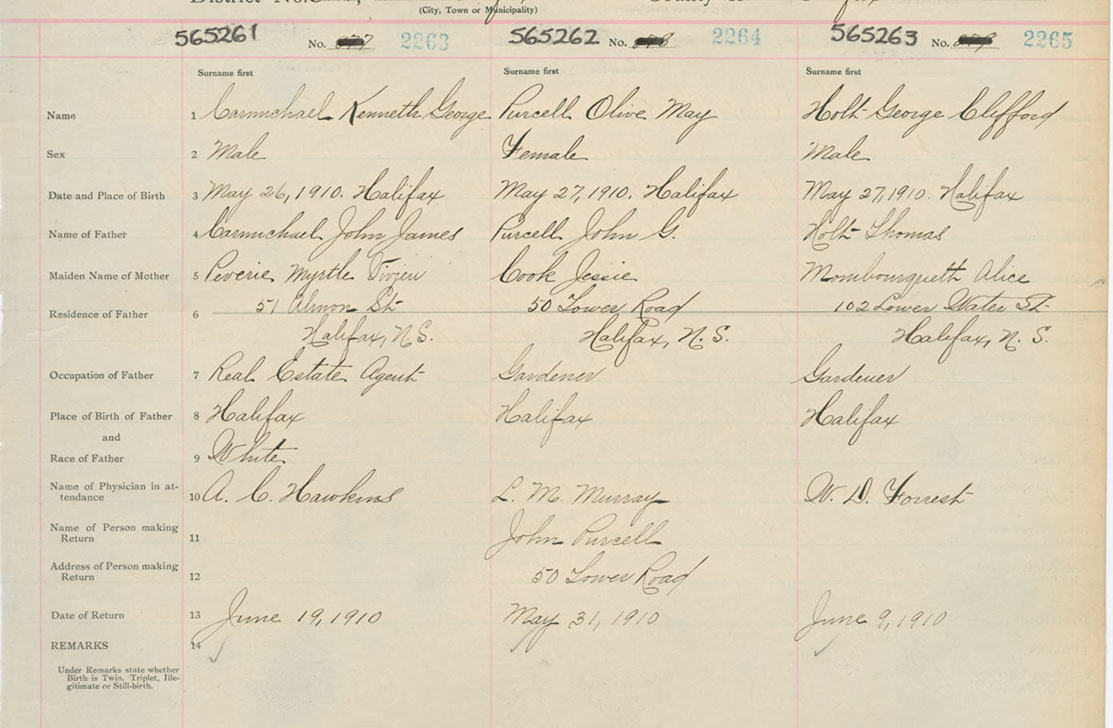 (City, Town or Municipality)
565261 No. 2263 565262 No. 2264 565263 No. 2265
Surname first Surname first Surname first
Name 1 Carmichael Kenneth George Purcell Olive May Holt George Clifford
Sex 2 Male Female Male
Date and Place of Birth 3 May 26, 1910. Halifax May 27, 1910. Halifax May 27, 1910. Halifax
Name of Father 4 Carmichael John James Purcell John G. Holt Thomas
Maiden Name of Mother 5 Peverie Myrtle Cook Jessie Mombourqueth Alice
51 Almon St 50 Tower Road 102 Lower Water St.
Residence of Father 6
Halifax, N.S. Halifax, N.S. Halifax, N.S.
Occupation of Father 7 Real Estate Agent Gardener Gardener
Place of Birth of Father 8 Halifax Halifax Halifax
and
Race of Father 9 White
Name of Physician in at-
tendance 10 A. C. Hawkins L. M. Murray W. D. Forrest
Name of Person making
Return 11 John Purcell
Address of Person making
Return 12 50 Tower Road
Date of Return 13 June 19, 1910 May 31, 1910 June 9, 1910
REMARKS 14
Under Remarks state whether
Birth is Twin, Triplet, Ille-
gitimate or Still-birth.